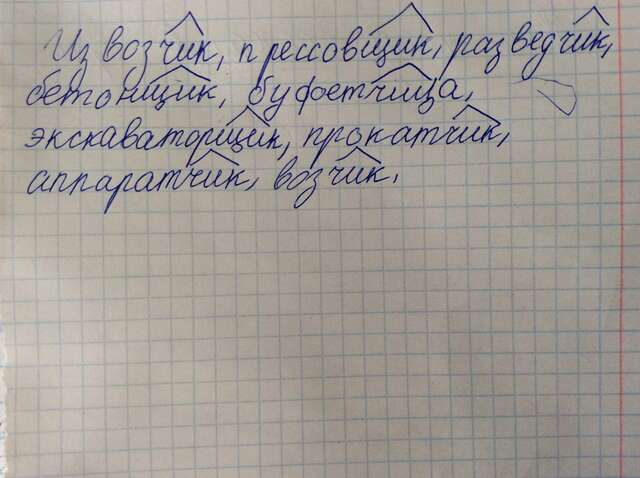 Из возчик, прессовщик, разведчик,
бетонщик, буфетчица,
экскаваторщик, прокатчик,
аппаратчик, возчик.